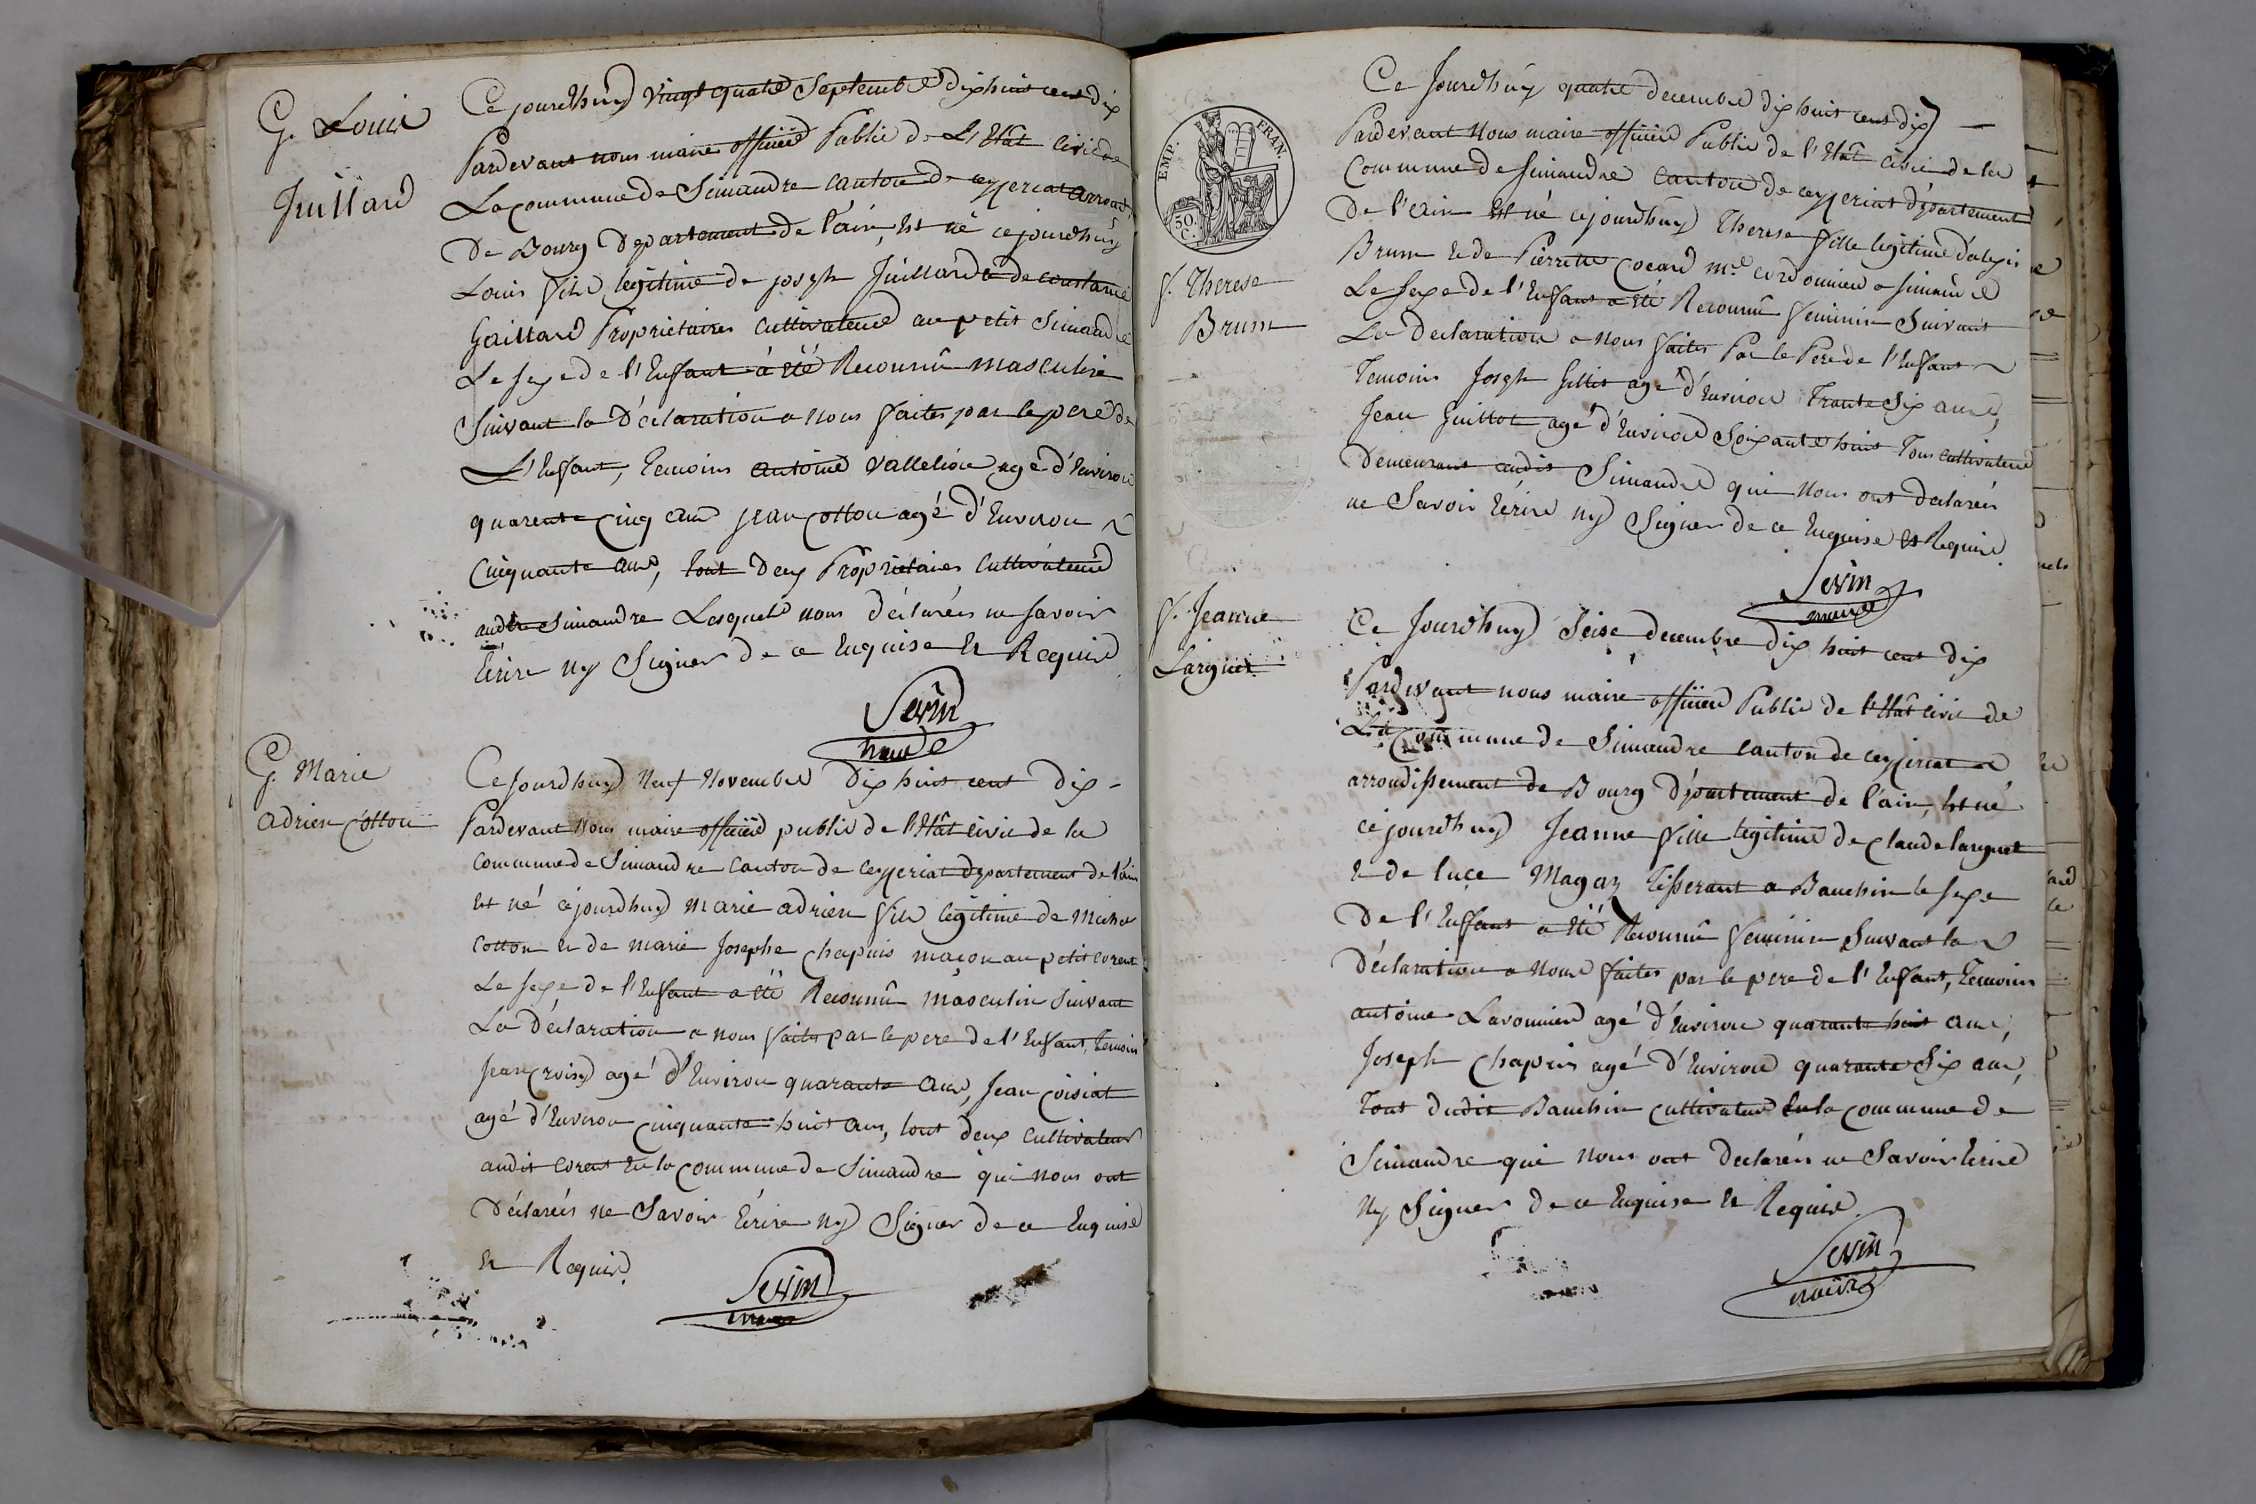 G. Louis
Juillard
Ce jourdhuy vingt quatre Septembre dix huit cent dix
Pardevant nous maire officier Public de L'Etât civic de
La commune de Simandre canton de ceyzeriat arrond.
De Bourg Departement de l'ain, Est né cejourdhuy
Louis fils legitime de joseph Juillard & de constance
Gaillard Proprietaires cultivateurs au petit Simandre
Le sexe de l'Enfant á été Reconnû masculin
Suivant la Déclaration a nous faites par le pere de
L'Enfant, Temoins antoine Vallelion age d'Environ
quarente cinq ans jean cotton agé d'Environ
Cinquante ans, tout deux Propriétaires Cultivateurs
audit Simandre Lesquels nous déclarés ne savoir
Ecrire ny Signer de ce Enquise Et Requis
Sevin
maire
G. Marie
adrien Cotton
Ce jourdhuy Neuf Novembre dix huit cent dix -
Pardevant Nous maire officier public de l'Etât civic de la
commune de Simandre canton de ceyzeriat departement de l'ain
Est né cejourdhuy marie adrien fils legitime de Michel
Cotton et de marie Josephe Chapuis maçon au petit corent
Le sexe de l'Enfant a été Reconnû masculin Suivant
La Déclaration a nous faites par le pere de l'Enfant, Temoins
Jean Croisy agé d'Environ quarante ans, Jean Coisiat
agé d'Environ cinquante huit ans, tout deux cultivateurs
audit corent En la commune de Simandre qui nous ont
Déclarés ne Savoir Ecrire ny Signer de ce Enquise
Et Requis.
Sevin
maire
EMP. FRAN.
50 C.
f. Therese
Brun
Ce Jourdhuy quatre decembre dix huit cent dix
Pardevant Nous maire officier Public de l'Etât civic de la
Commune de Simandre Canton de ceyzeriat département
De l'ain Est né cejourdhuy Therese fille legitime d'alexis
Brun Et de Pierrette Cocard md. cordonnier a simandre
Le Sexe de l'Enfant a été Reconnû feminin Suivant
La Declaration a Nous faites Par le Pere de l'Enfant
Temoins Joseph Gillit agé d'Environ Trante Six ans,
Jean Guillot agé d'Environ Soixante huit Tous cultivateurs
Demeurant audit Simandre qui Nous ont declarés
ne Savoir Ecrire ny Signer de ce Enquise Et Requis.
Sevin
maire
f. Jeanne
Larguet
Ce Jourdhuy Seise decembre dix huit cent dix
Pardevant nous maire officier Public de l'Etât civic de
La Commune de Simandre canton de ceyzeriat
arrondissement de Bourg Département de l'ain, Est né
cejourdhuy Jeanne fille legitime de Claude larguet
Et de luce Magaz Tisserant a Banchin le sexe
De l'Enfant a été Reconnû feminin Suivant la
Déclaration a Nous faites par le pere de l'Enfant, Temoins
antoine Lavonnier agé d'Environ quarante huit ans,
Joseph Chapuis agé d'Environ quarante Six ans,
Tout dudit Banchin cultivateurs En la commune de
Simandre qui nous ont Declarés ne Savoir Ecrire
Ny Signer de ce Enquise Et Requis.
Sevin
maire